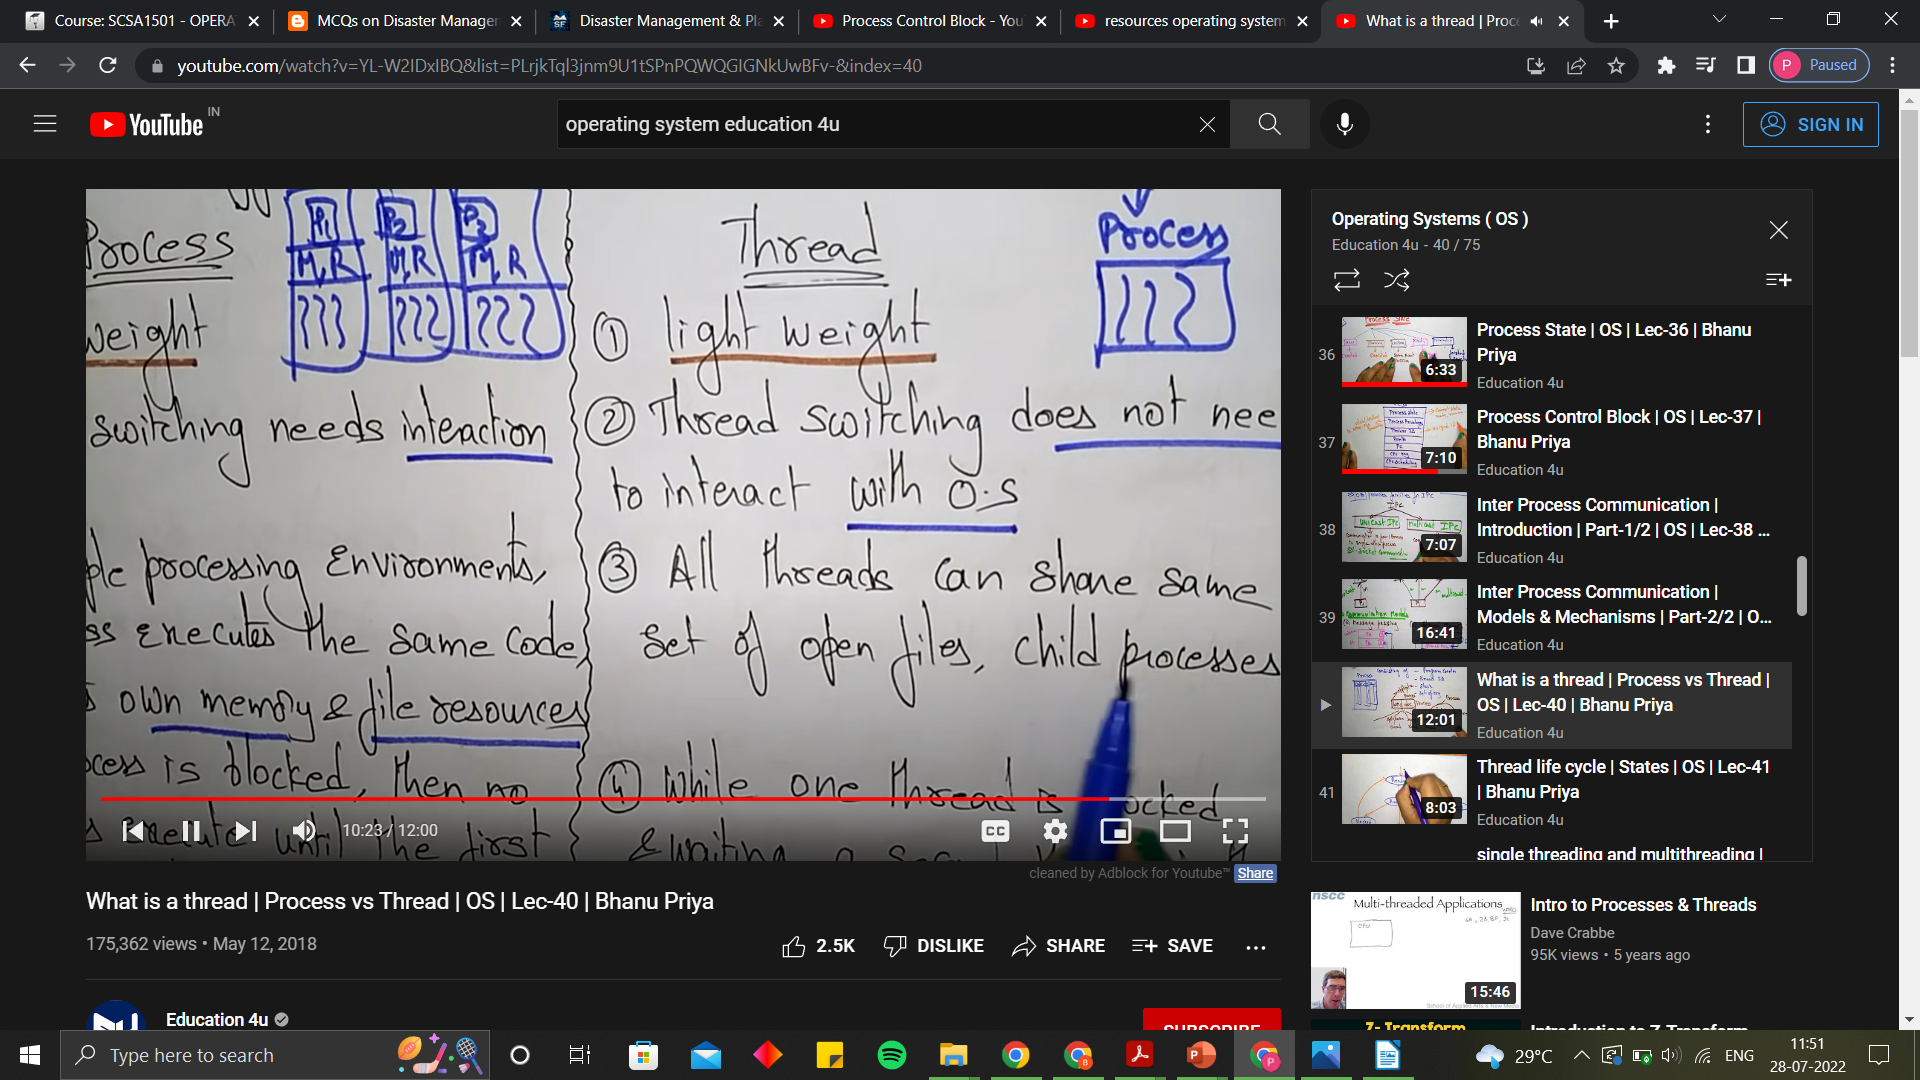 Course: SCSA1501 - OPERA
MCQs on Disaster Managem
Disaster Management & Pla
Process Control Block - You
resources operating system
What is a thread | Proce
youtube.com/watch?v=YL-W2IDxIBQ&list=PLrjkTql3jnm9U1tSPnPQWQGIGNkUwBFv-&index=40
P Paused
YouTube IN
operating system education 4u
SIGN IN
Process
P1 P2 P3
M,R M,R M,R
weight
switching needs inteaction
ple processing Environments,
ss executes the same code,
s own memory & file resources
ocess is blocked, then no
execute until the first
Thread
Process
① light weight
② Thread switching does not nee
to interact with O.S
③ All threads can share same
set of open files, child processes
④ While one thread is ocked
& waiting a
10:23 / 12:00
CC
cleaned by Adblock for Youtube™ Share
What is a thread | Process vs Thread | OS | Lec-40 | Bhanu Priya
175,362 views • May 12, 2018
2.5K DISLIKE SHARE SAVE ...
Education 4u
SUBSCRIBE
Operating Systems ( OS )
Education 4u - 40 / 75
36
6:33
Process State | OS | Lec-36 | Bhanu
Priya
Education 4u
37
7:10
Process Control Block | OS | Lec-37 |
Bhanu Priya
Education 4u
38
7:07
Inter Process Communication |
Introduction | Part-1/2 | OS | Lec-38 ...
Education 4u
39
16:41
Inter Process Communication |
Models & Mechanisms | Part-2/2 | O...
Education 4u
12:01
What is a thread | Process vs Thread |
OS | Lec-40 | Bhanu Priya
Education 4u
41
8:03
Thread life cycle | States | OS | Lec-41
| Bhanu Priya
Education 4u
single threading and multithreading |
nscc
Multi-threaded Applications
15:46
Intro to Processes & Threads
Dave Crabbe
95K views • 5 years ago
Z- Transform
Introduction to Z-Transform
Type here to search
29°C
ENG
11:51
28-07-2022